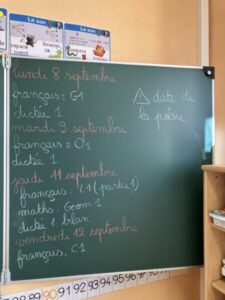 Le son
Le son
lundi 8 septembre
français : G1
dictée 1
mardi 9 septembre
français : O1
dictée 1
jeudi 11 septembre
français : L1 (partie 1)
maths : Géom 1
dictée 1 bilan
vendredi 12 septembre
français : C1
date de
la poésie
89 90 91 92 93 94 95 96 97 98 99